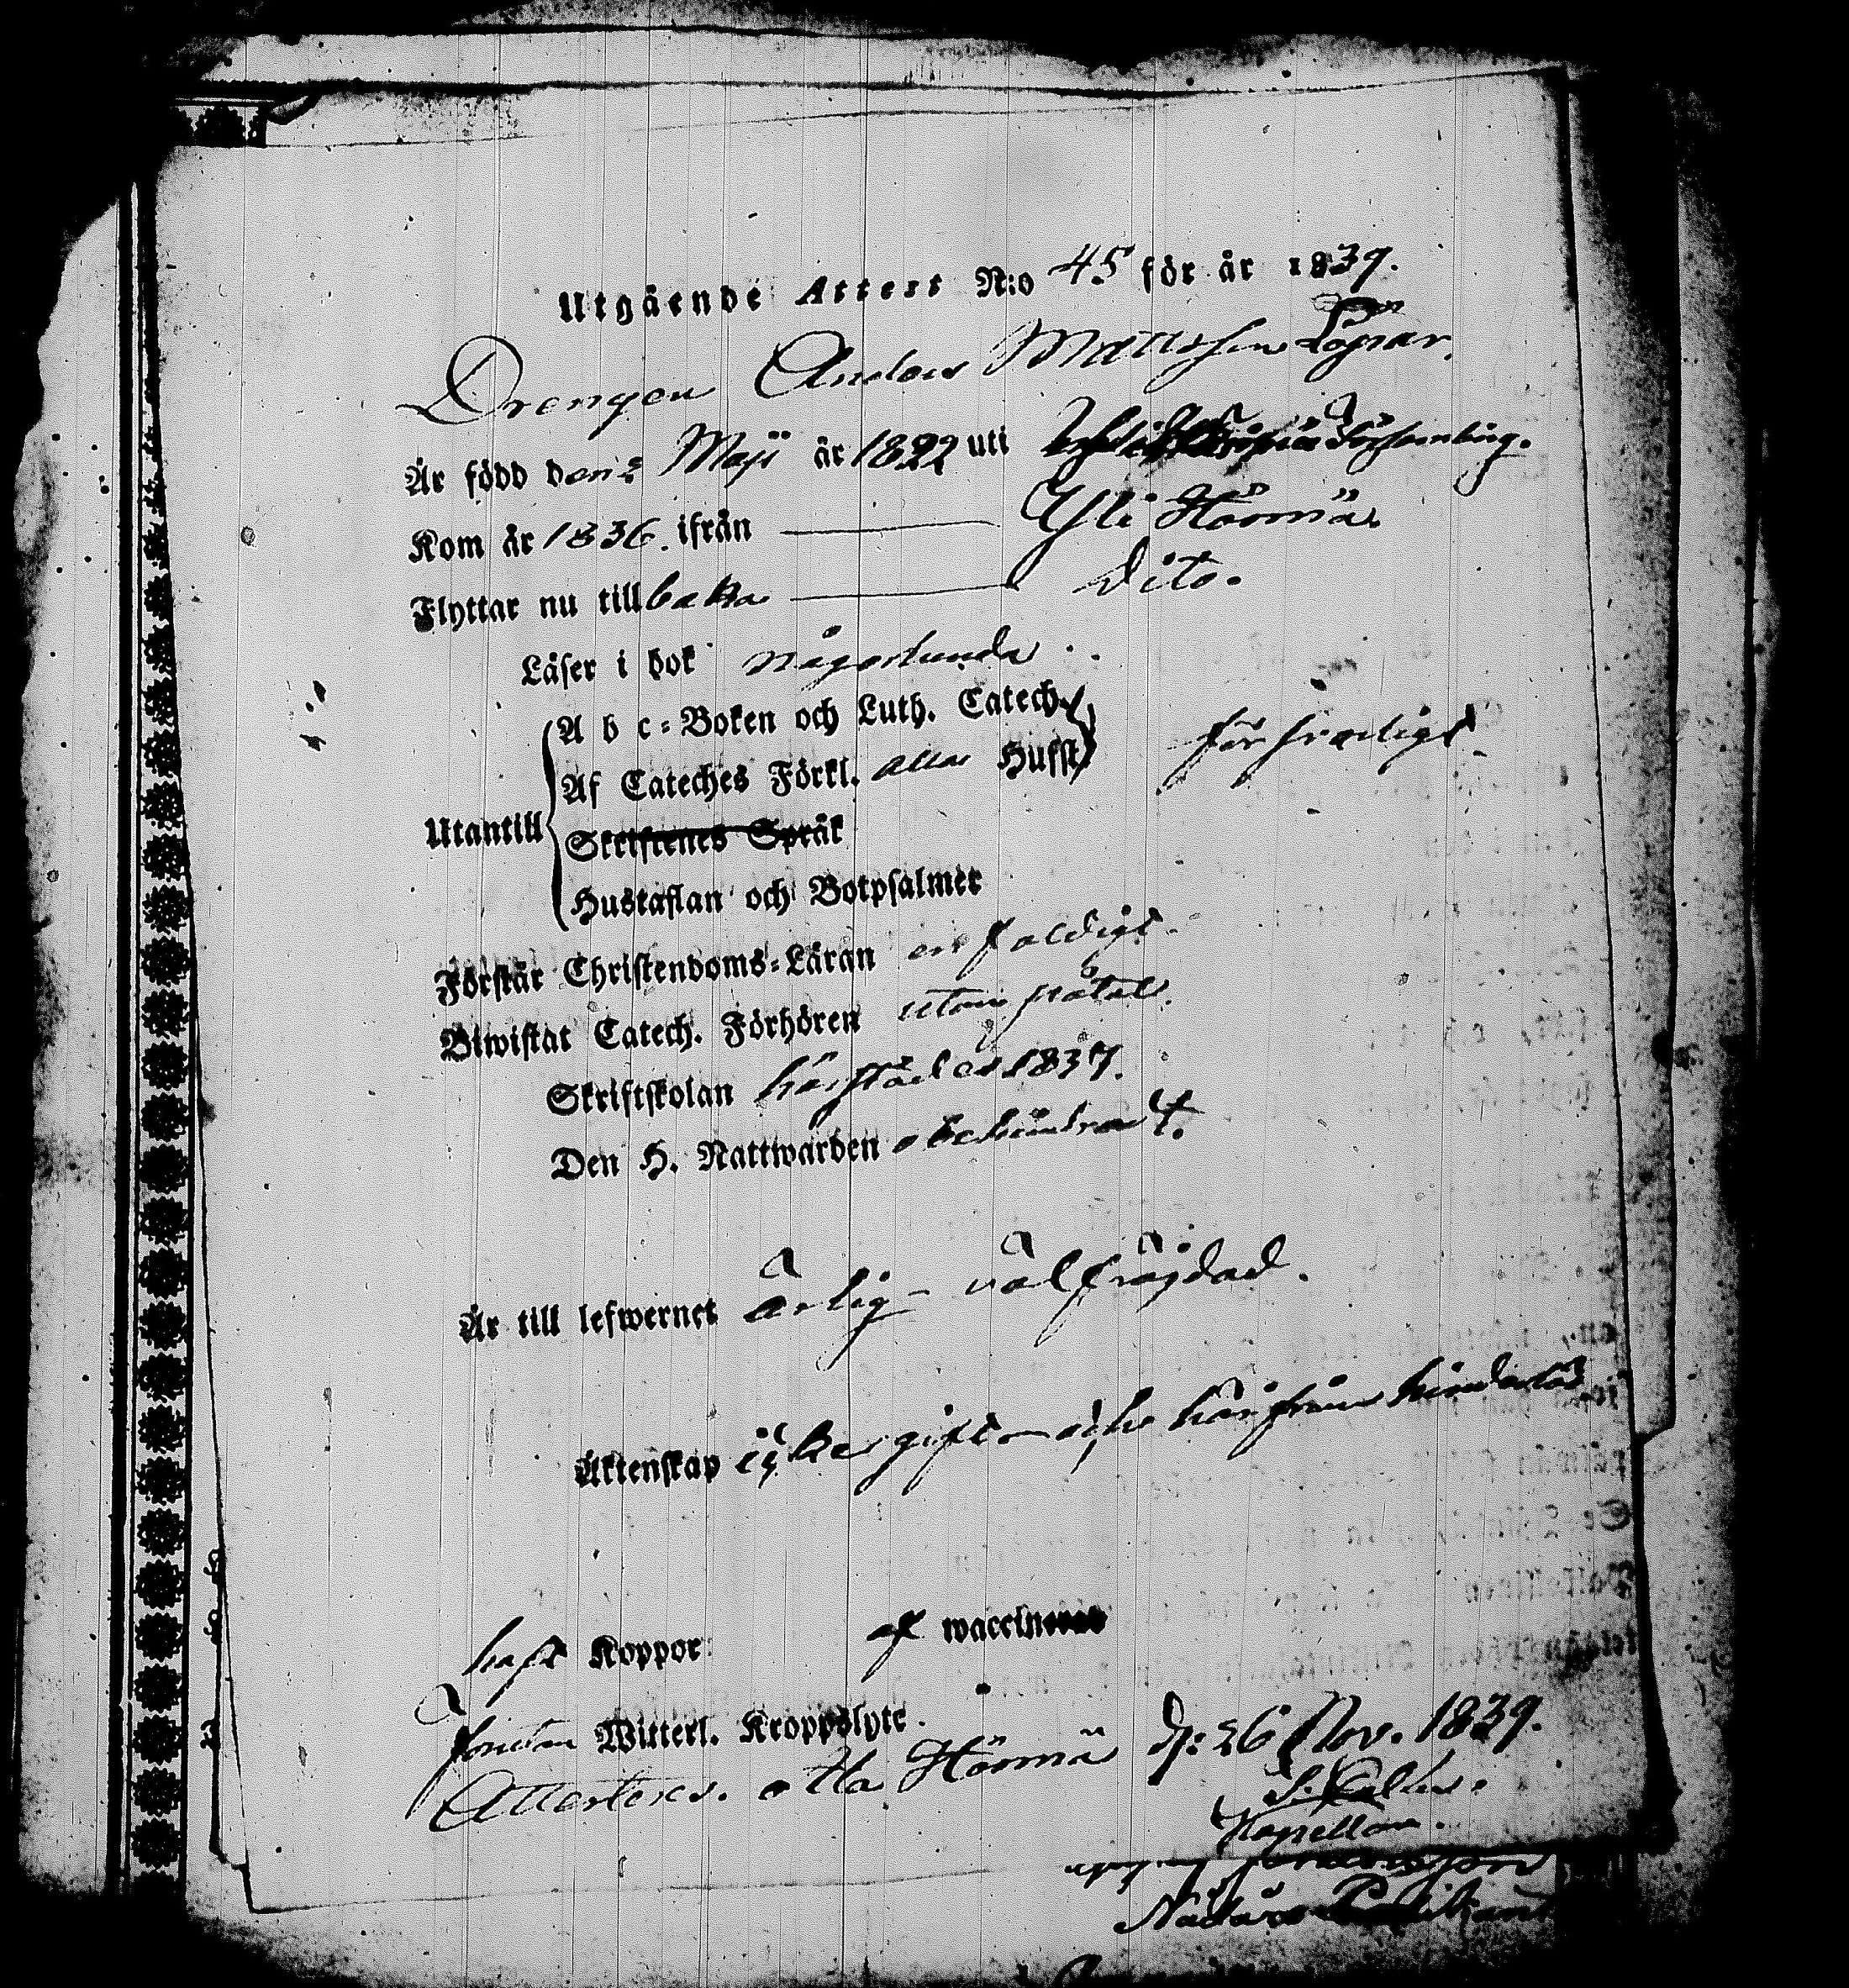 Utgående Attest N:o 45 för år 1839.
Drengen Anders Mattsson
Är född den 2 Maji år 1822 uti
Kom år 1836. ifrån — Yli Härmä
Flyttar nu tillbaka — Dito.
Läser i bok någorlunda.
A b c-Boken och Luth. Catech.
Af Cateches Förkl. alla Hufst. försvarligt
Utantill
Skriftenes Språk
Hustaflan och Botpsalmer
Förstår Christendoms-Läran enfaldigt.
Biwistat Catech. Förhören utom påtal.
Skriftskolan härstädes 1837.
Den H. Nattwarden obehindradt.
Är till lefwernet ärlig – välfrägdad.
Äktenskap icke gift – och härifrån hinderlös
haft Koppor. af waccineras
förutan Witterl. Kroppslyte.
Attesteras. Ala Härmä d: 26 Nov. 1839.
Kapellan.